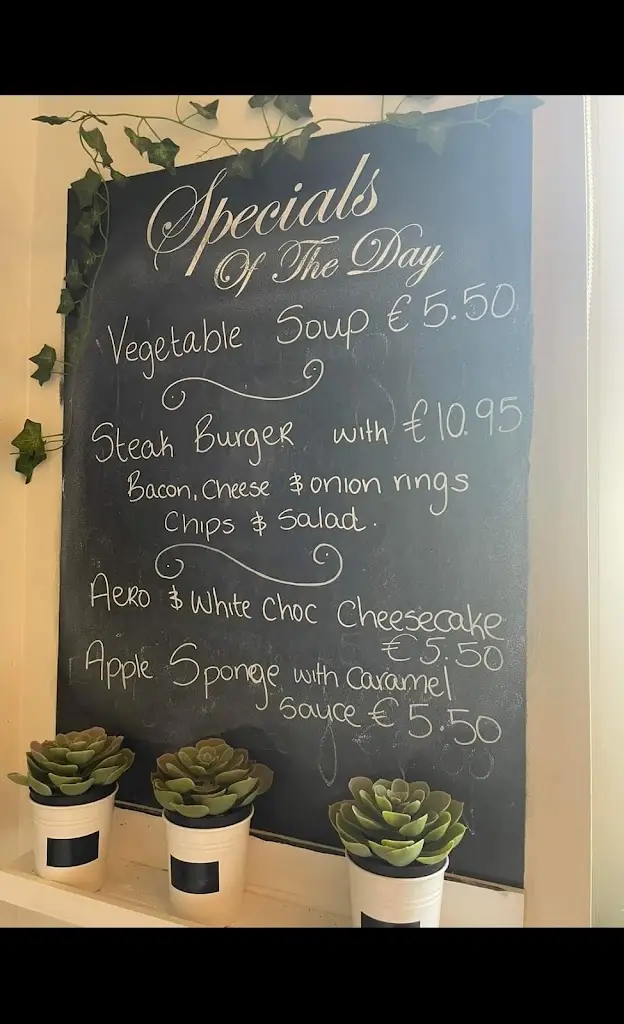 Specials
Of The Day
Vegetable Soup €5.50
Steak Burger with €10.95
Bacon, Cheese & onion rings
Chips & Salad.
Aero & White Choc Cheesecake
€5.50
Apple Sponge with caramel
sauce €5.50